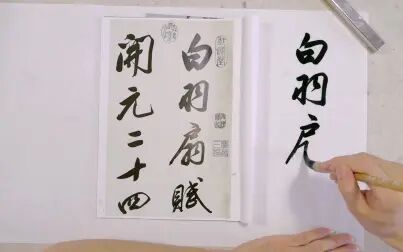 白羽扇賦
開元二十四
白羽戶